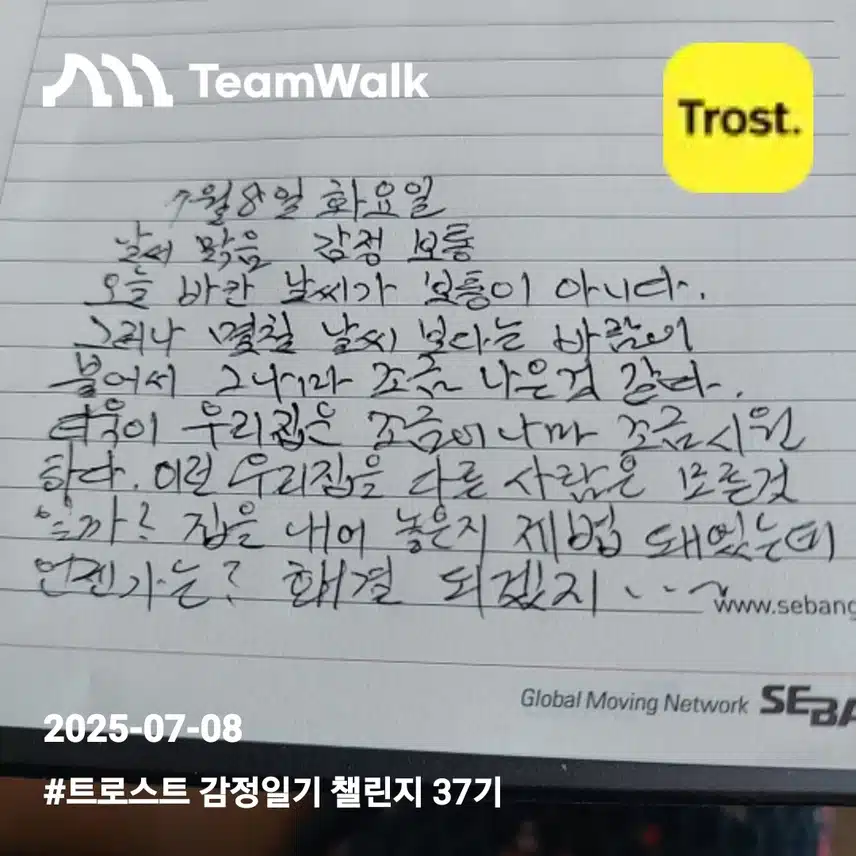 TeamWalk
Trost.
7월8일 화요일
날씨 맑음 감정 보통
오늘 바깥 날씨가 보통이 아니다.
그러나 몇칠 날씨 보다는 바람이
불어서 그나마 조금 나은것 같다.
더욱이 우리집은 조금이나마 조금시원
하다. 이런 우리집을 다른 사람은 모른것
일까? 집을 내어 놓은지 제법 돼었는데
언젠가는? 해결 되겠지...~
www.sebang
Global Moving Network SEBA
2025-07-08
#트로스트 감정일기 챌린지 37기